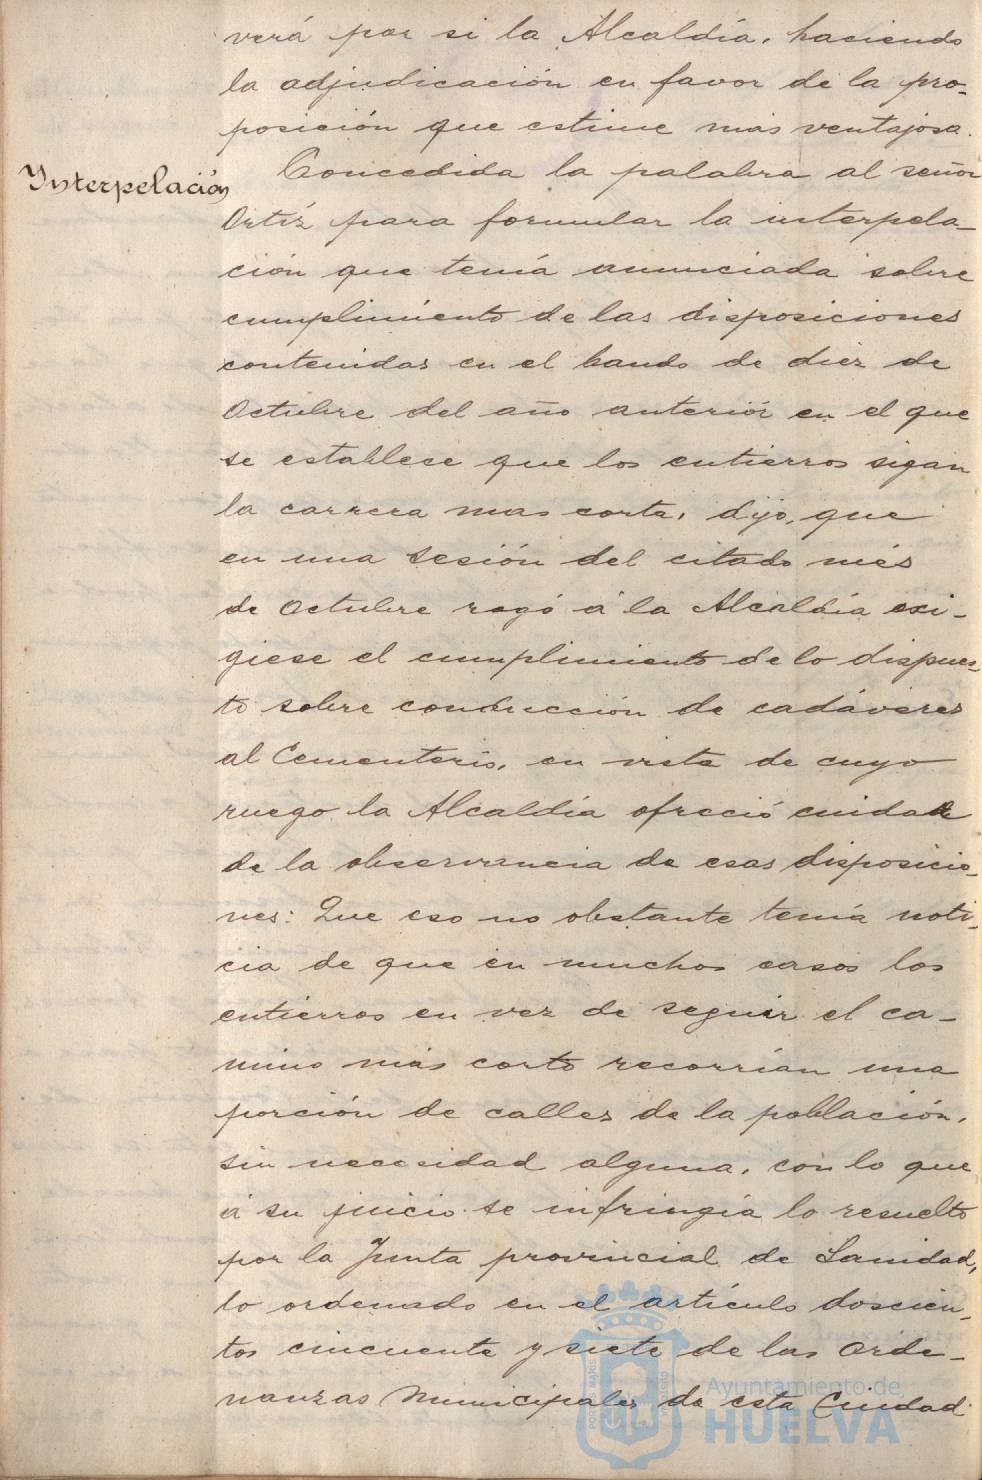 verá por si la Alcaldía, haciendo
la adjudicación en favor de la pro-
posición que estime mas ventajosa.
Interpelación
Concedida la palabra al señor
Ortíz para formular la interpela-
ción que tenía anunciada sobre
cumplimiento de las disposiciones
contenidas en el bando de diez de
Octubre del año anterior en el que
se establece que los entierros sigan
la carrera mas corta, dijo, que
en una sesión del citado més
de Octubre rogó á la Alcaldía exi-
giese el cumplimiento de lo dispues-
to sobre conducción de cadáveres
al Cementerio, en vista de cuyo
ruego la Alcaldía ofreció cuidar
de la observancia de esas disposicio-
nes: Que eso no obstante tenía noti-
cia de que en muchos casos los
entierros en vez de seguir el ca-
mino más corto recorrían una
porción de calles de la población,
sin necesidad alguna, con lo que
á su juicio se infringía lo resuelto
por la Junta provincial de Sanidad,
lo ordenado en el artículo doscien-
tos cincuenta y siete de las Orde-
nanzas Municipales de esta Ciudad
Ayuntamiento de
HUELVA